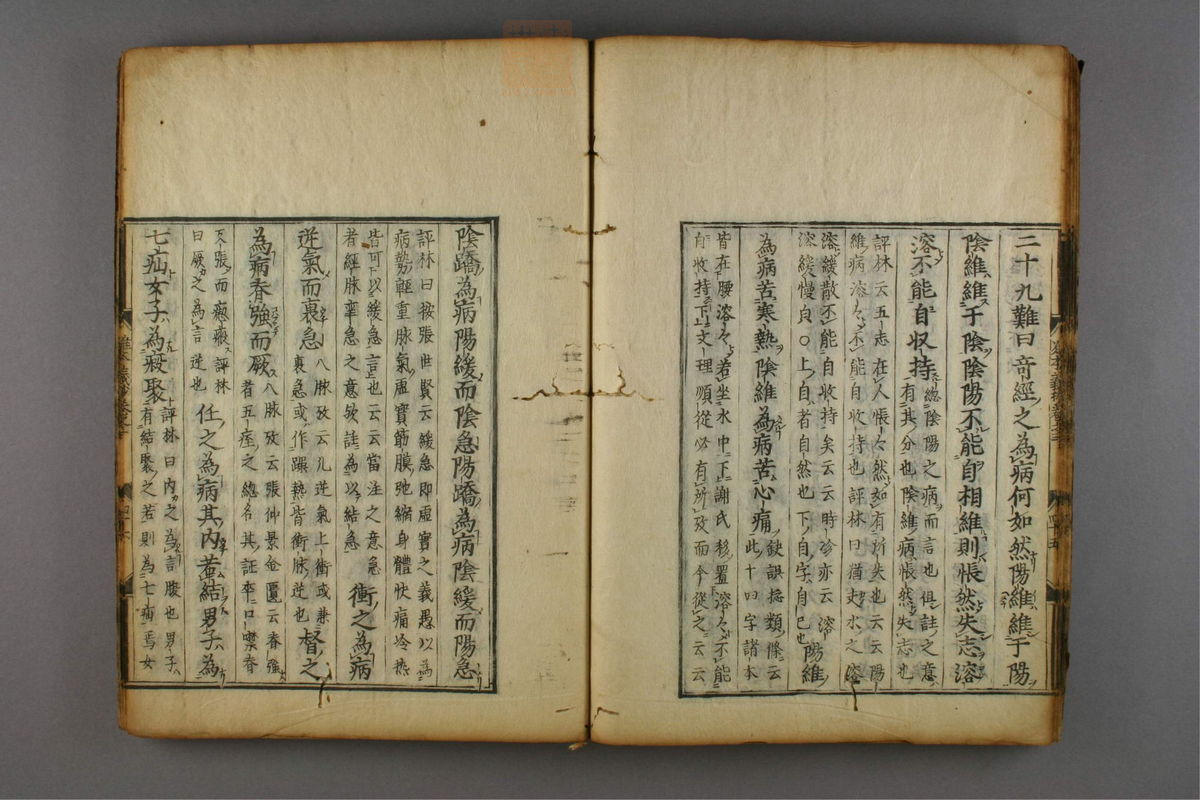 二十九難曰奇經之為病何如然陽維維于陽
陰維維于陰陰陽不能自相維則悵然失志溶
溶不能自収持
總陰陽之病而言也俱註之意
有其分也陰維病悵然失志也
評林云五志在人悵々然如有所失也云云陽
維病溶々不能自收持也評林曰猶
水之溶
溶緩散不能自收持矣云云時珍亦云溶
溶緩慢皃○上自者自然也下自字自己也
陽維
為病苦寒熱陰維為病苦心痛
缺誤捴類條云
此十四字諸本
皆在腰溶々若坐水中下謝氏移置溶々不能
自收持下上文理順從必有所攷而今從之云云
陰蹻為病陽緩而陰急陽蹻為病陰緩而陽急
評林曰按張世賢云緩急即虛實之義愚以為
病勢輕重脉氣虛實筋膜弛縮身體快痛冷热
皆可以緩急言也云云當注之意急
者經脉牽急之意欤註為以結急
衝之為病
逆氣而裏急
八脉攷云凡逆氣上衝或兼
裏急或作躁热皆衝脉逆也
督之
為病脊強而厥
八脉攷云張仲景金匱云脊強
者五痓之總名其証卒口噤脊
反張而瘛瘲評林
曰厥之為言逆也
任之為病其内苦結男子為
七疝女子為瘕聚
評林曰内之為言腹也男子
有結聚之苦則為七疝焉女